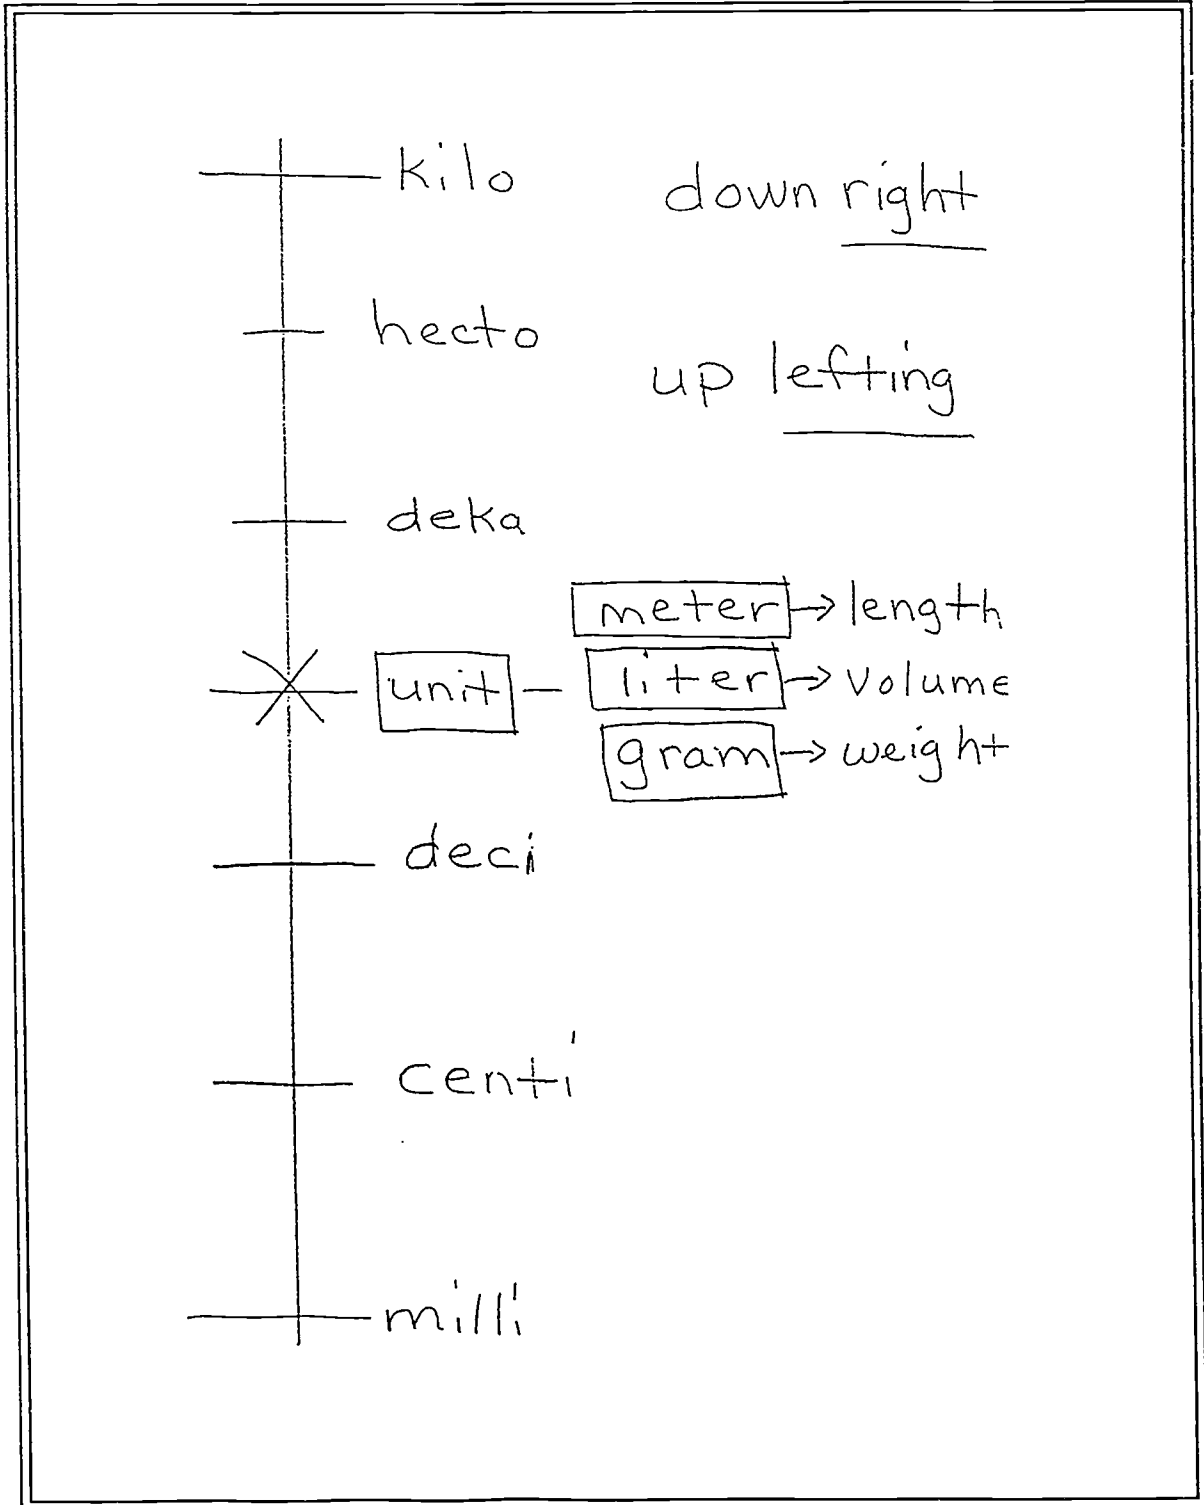 kilo
down right
hecto
up lefting
deka
meter → length
unit — liter → volume
gram → weight
deci
centi
milli